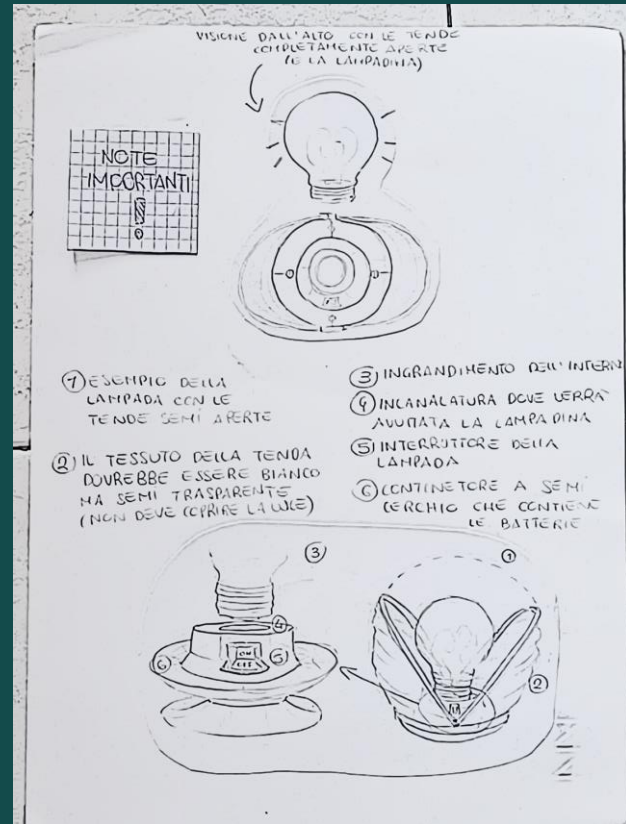 VISIONE DALL'ALTO CON LE TENDE
COMPLETAMENTE APERTE
(E LA LAMPADINA)
NOTE
IMPORTANTI
!
① ESEMPIO DELLA
LAMPADA CON LE
TENDE SEMI APERTE
② IL TESSUTO DELLA TENDA
DOVREBBE ESSERE BIANCO
MA SEMI TRASPARENTE
(NON DEVE COPRIRE LA LUCE)
③ INGRANDIMENTO DELL'INTERN
④ INCANALATURA DOVE VERRÀ
AVVITATA LA LAMPADINA
⑤ INTERRUTTORE DELLA
LAMPADA
⑥ CONTINETORE A SEMI
CERCHIO CHE CONTIENE
LE BATTERIE
③
①
④
⑥
ON
OFF
⑤
②